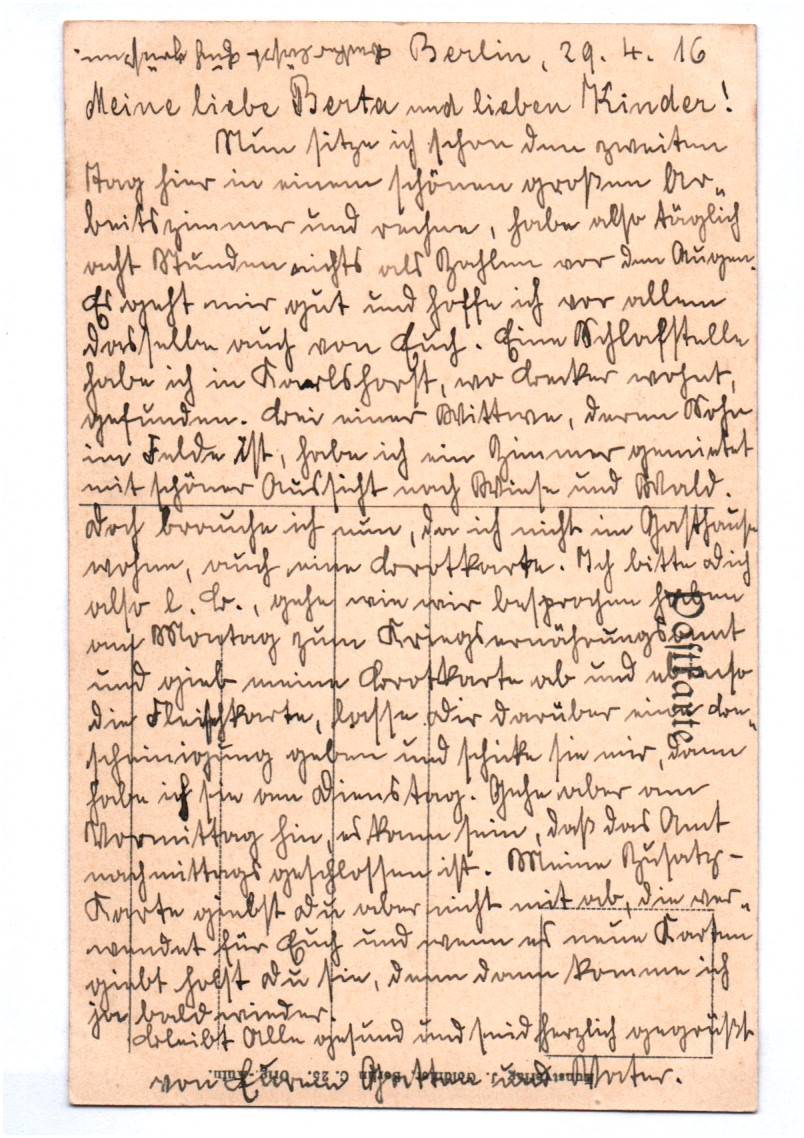 Berlin, 29. 4. 16
Meine liebe Berta und lieben Kinder!
Nun sitze ich schon den zweiten
Tag hier in einem schönen großen Ar-
beitszimmer und rechne, habe also täglich
acht Stunden nichts als Zahlen vor den Augen.
Es geht mir gut und hoffe ich vor allem
dasselbe auch von Euch. Eine Schlafstelle
habe ich in Karlshorst, wo Becker wohnt,
gefunden. Bei einer Wittwe, deren Sohn
im Felde ist, habe ich ein Zimmer gemietet
mit schöner Aussicht nach Wiese und Wald.
Doch brauche ich nun, da ich nicht im Gasthause
wohne, auch eine Brotkarte. Ich bitte Dich
also l. B., gehe wie wir besprochen haben
am Montag zum Kriegsernährungsamt
und gieb meine Brotkarte ab und ebenso
die Fleischkarte, lasse Dir darüber eine Be-
scheinigung geben und schicke sie mir, dann
habe ich sie am Dienstag. Gehe aber am
Vormittag hin, es kann sein, daß das Amt
nachmittags geschlossen ist. Meine Zusatz-
Karte giebst Du aber nicht mit ab, die ver-
wendet für Euch und wenn es neue Karten
giebt holst Du sie, denn dann komme ich
ja bald wieder.
Bleibt Alle gesund und seid herzlich gegrüßt
von Eurem Gatten und Vater.
Postkarte